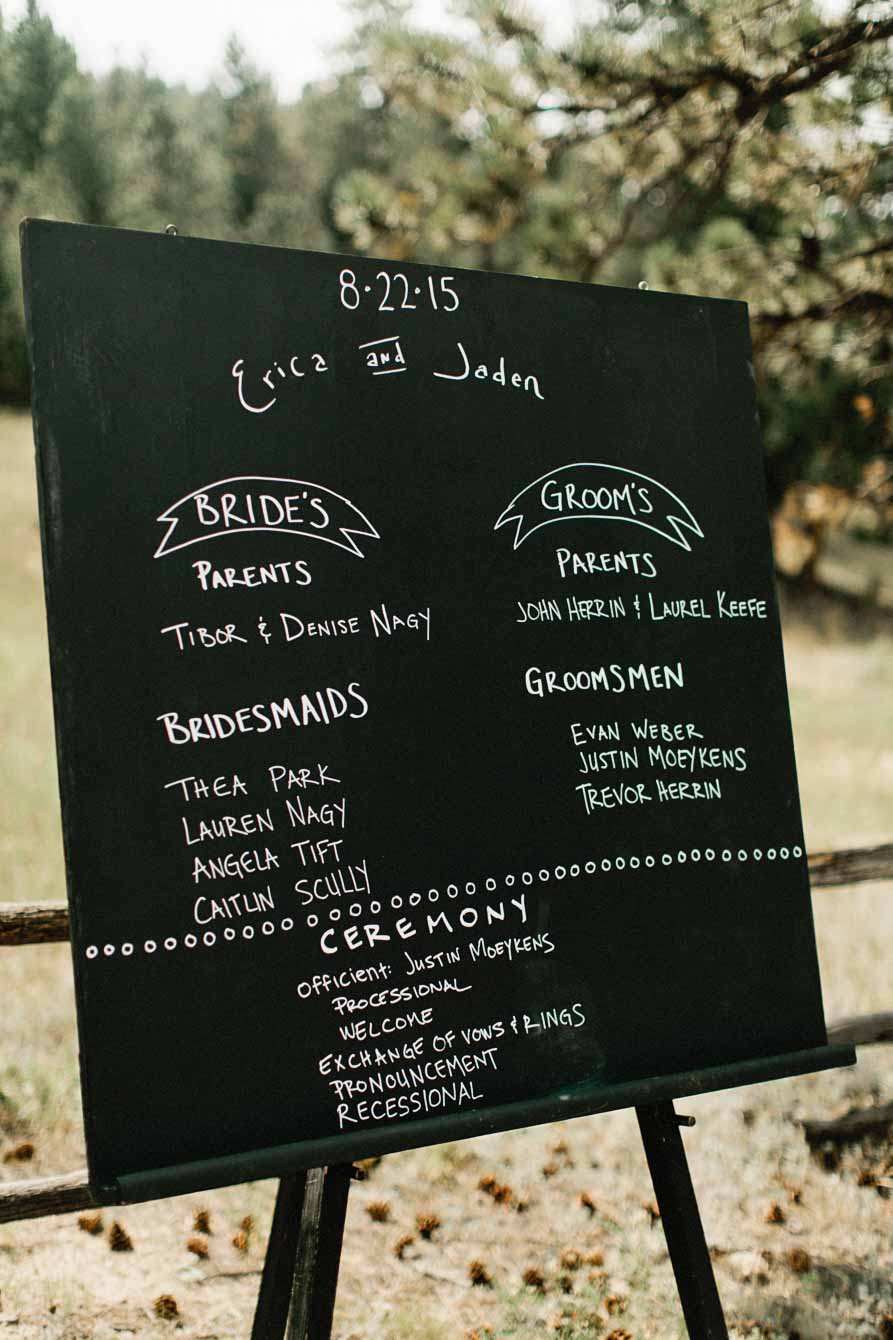 8·22·15
Erica and Jaden
BRIDE'S
PARENTS
TIBOR & DENISE NAGY
BRIDESMAIDS
THEA PARK
LAUREN NAGY
ANGELA TIFT
CAITLIN SCULLY
GROOM'S
PARENTS
JOHN HERRIN & LAUREL KEEFE
GROOMSMEN
EVAN WEBER
JUSTIN MOEYKENS
TREVOR HERRIN
CEREMONY
Officient: JUSTIN MOEYKENS
PROCESSIONAL
WELCOME
EXCHANGE OF VOWS & RINGS
PRONOUNCEMENT
RECESSIONAL